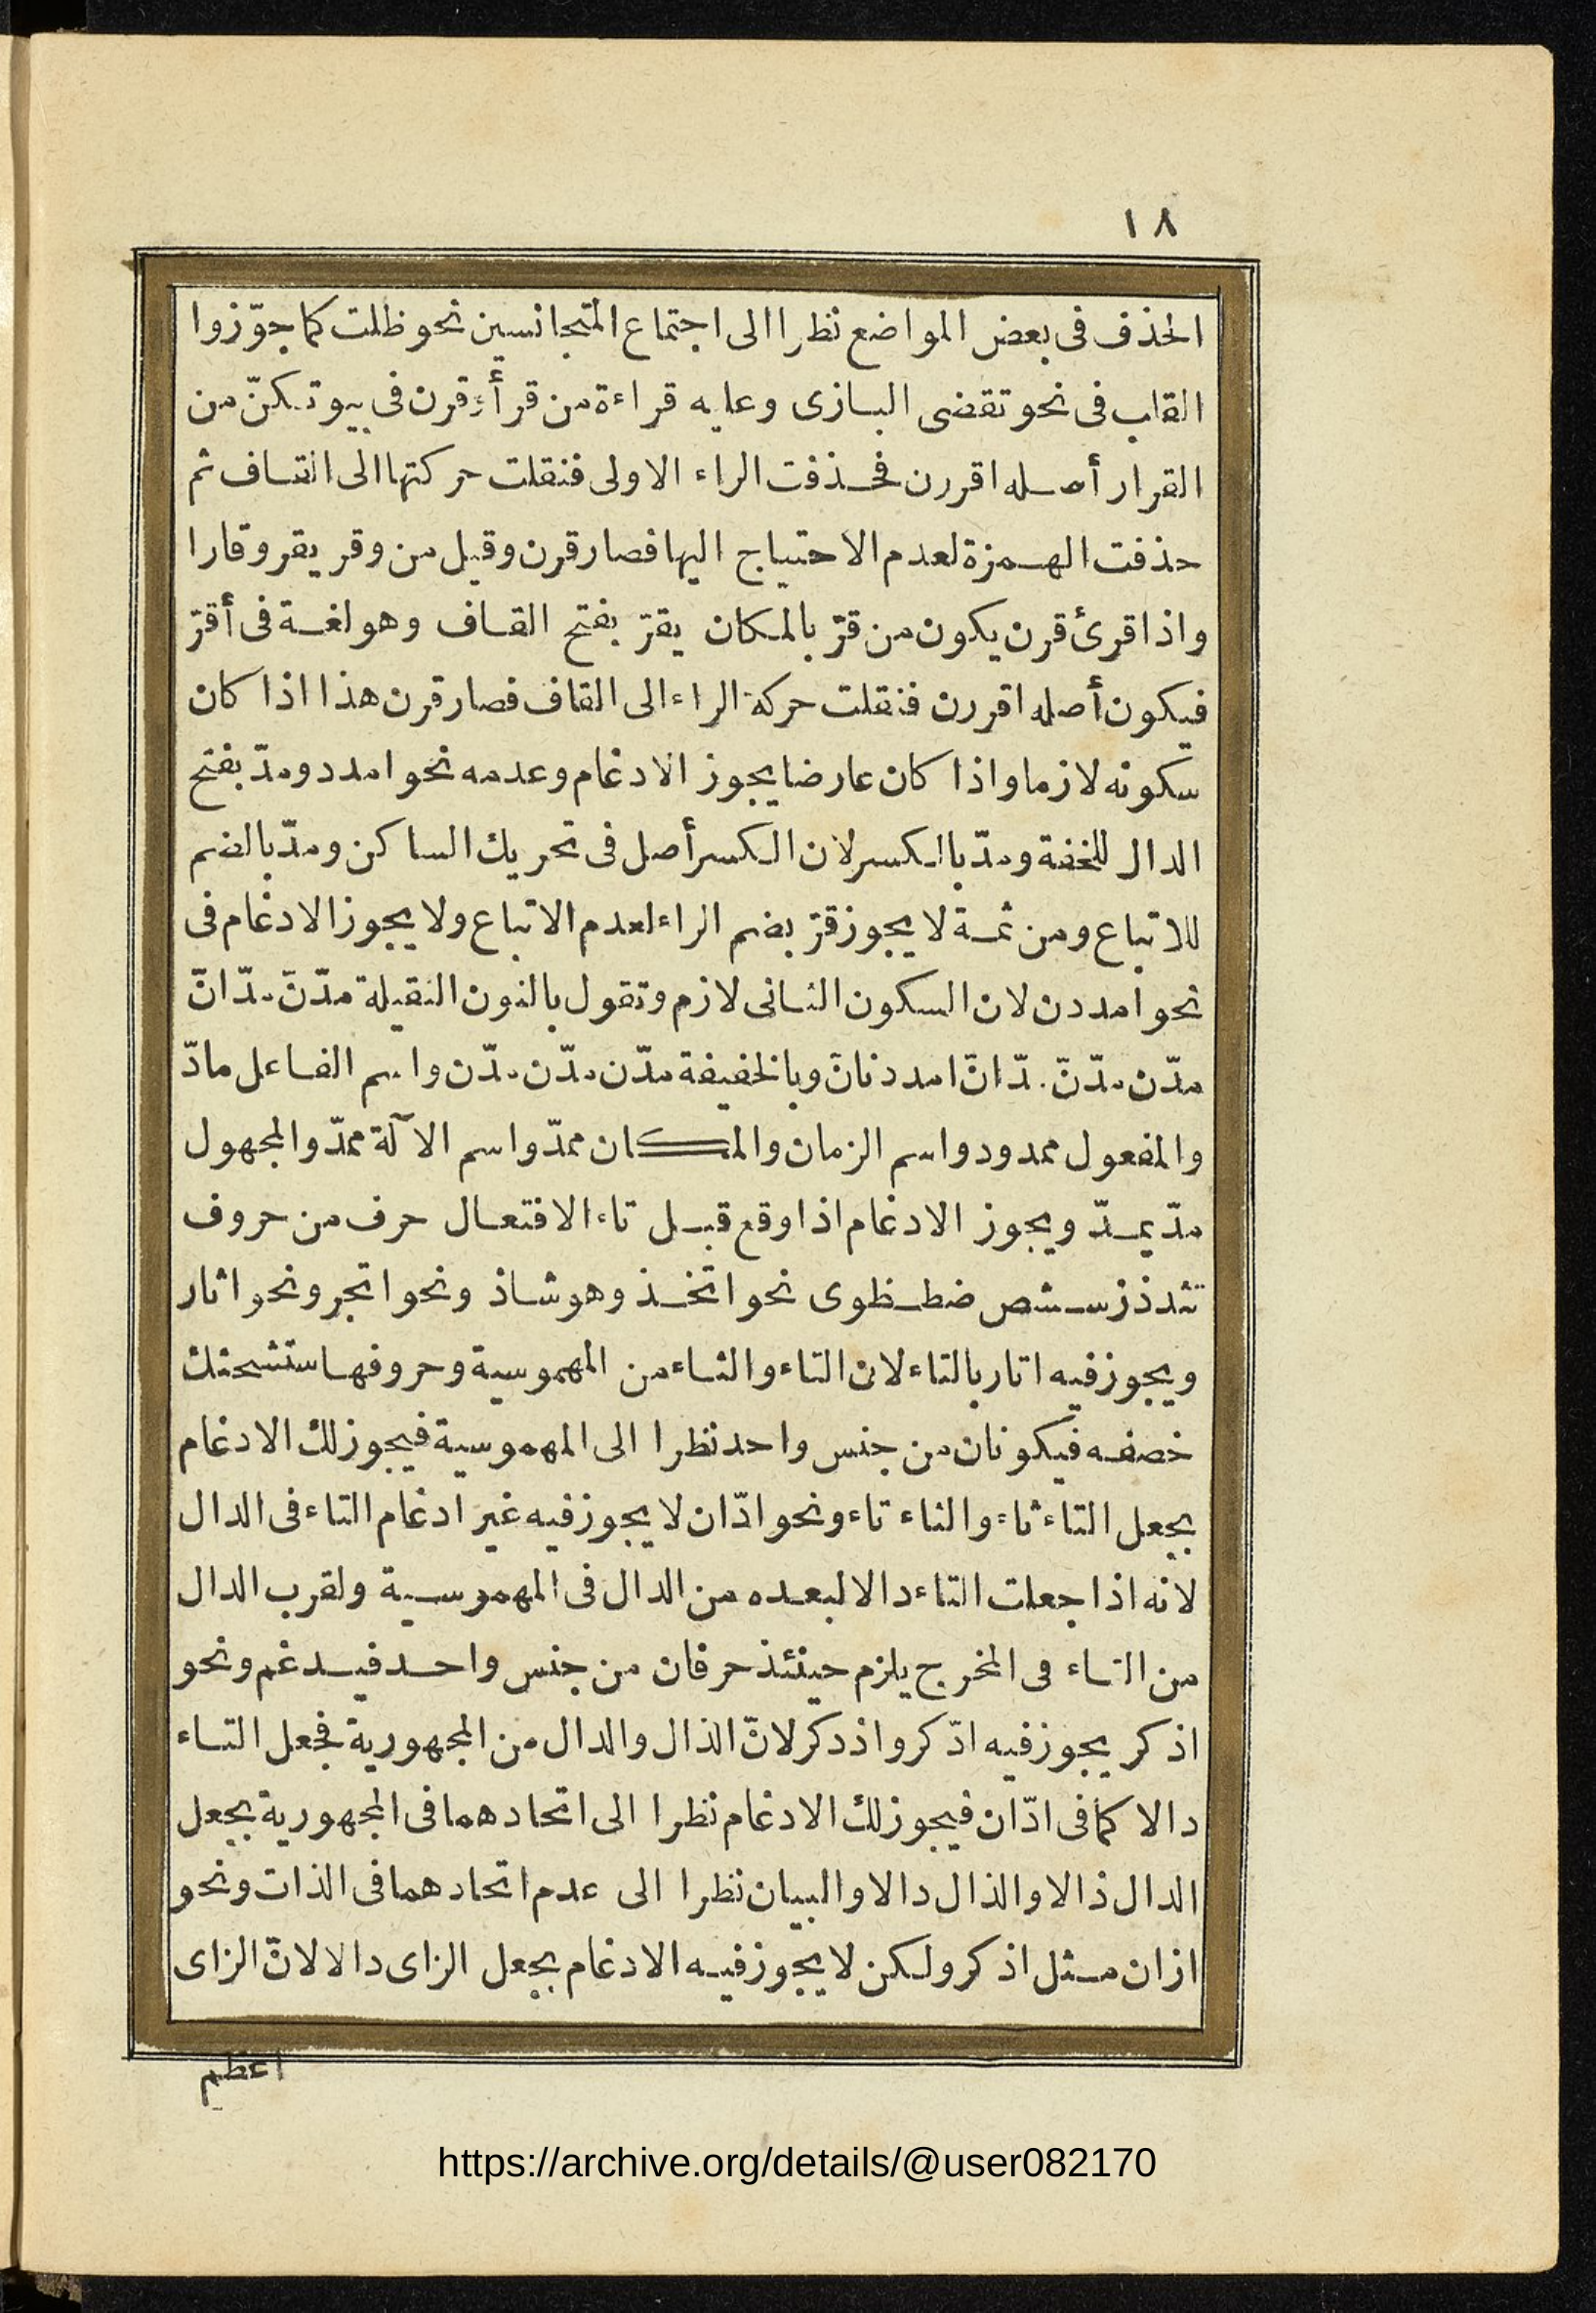 ١٨
الحذف فى بعض المواضع نظرا الى اجتماع المتجانسين نحو ظلت كما جوّزوا
القلب فى نحو تقضى البازى وعليه قراءة من قرأ وقرن فى بيوتكنّ من
القرار أصله اقررن فحذفت الراء الاولى فنقلت حركتها الى القاف ثم
حذفت الهمزة لعدم الاحتياج اليها فصار قرن وقيل من وقر يقر وقارا
واذا قرئ قرن يكون من قرّ بالمكان يقرّ بفتح القاف وهو لغة فى أقرّ
فيكون أصله اقررن فنقلت حركة الراء الى القاف فصار قرن هذا اذا كان
سكونه لازما واذا كان عارضا يجوز الادغام وعدمه نحو امدد ومدّ بفتح
الدال للخفة ومدّ بالكسر لان الكسر أصل فى تحريك الساكن ومدّ بالضم
للاتباع ومن ثمة لا يجوز قرّ بضم الراء لعدم الاتباع ولا يجوز الادغام فى
نحو امددن لان السكون الثانى لازم وتقول بالنون الثقيلة مدّنّ مدّانّ
مدّن مدّنّ مدّانّ امددنانّ وبالخفيفة مدّن مدّن مدّن واسم الفاعل مادّ
والمفعول ممدود واسم الزمان والمكان ممدّ واسم الآلة ممدّ والمجهول
مدّ يمدّ ويجوز الادغام اذا وقع قبل تاء الافتعال حرف من حروف
تثدذزسشصضطظوى نحو اتخذ وهو شاذ ونحو اتجر ونحو اثار
ويجوز فيه اتار بالتاء لان التاء والثاء من المهموسية وحروفها ستشحثك
خصفه فيكونان من جنس واحد نظرا الى المهموسية فيجوز لك الادغام
بجعل التاء ثاء والثاء تاء ونحو ادّان لا يجوز فيه غير ادغام التاء فى الدال
لانه اذا جعلت التاء دالا لبعده من الدال فى المهموسية ولقرب الدال
من التاء فى المخرج يلزم حينئذ حرفان من جنس واحد فيدغم ونحو
اذكر يجوز فيه ادّكر واذدكر لانّ الذال والدال من المجهورية فجعل التاء
دالا كما فى ادّان فيجوز لك الادغام نظرا الى اتحادهما فى المجهورية بجعل
الدال ذالا والذال دالا والبيان نظرا الى عدم اتحادهما فى الذات ونحو
ازان مثل اذكر ولكن لا يجوز فيه الادغام بجعل الزاى دالا لانّ الزاى
اعظم
https://archive.org/details/@user082170